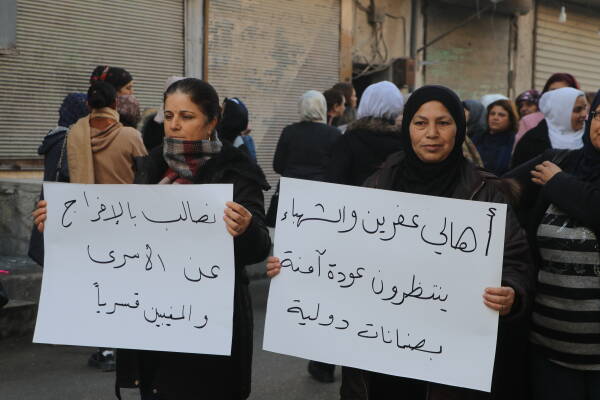 نطالب بالإفراج
عن الأسرى
والمغيبين قسرياً
أهالي عفرين والشهباء
ينتظرون عودة آمنة
بضمانات دولية